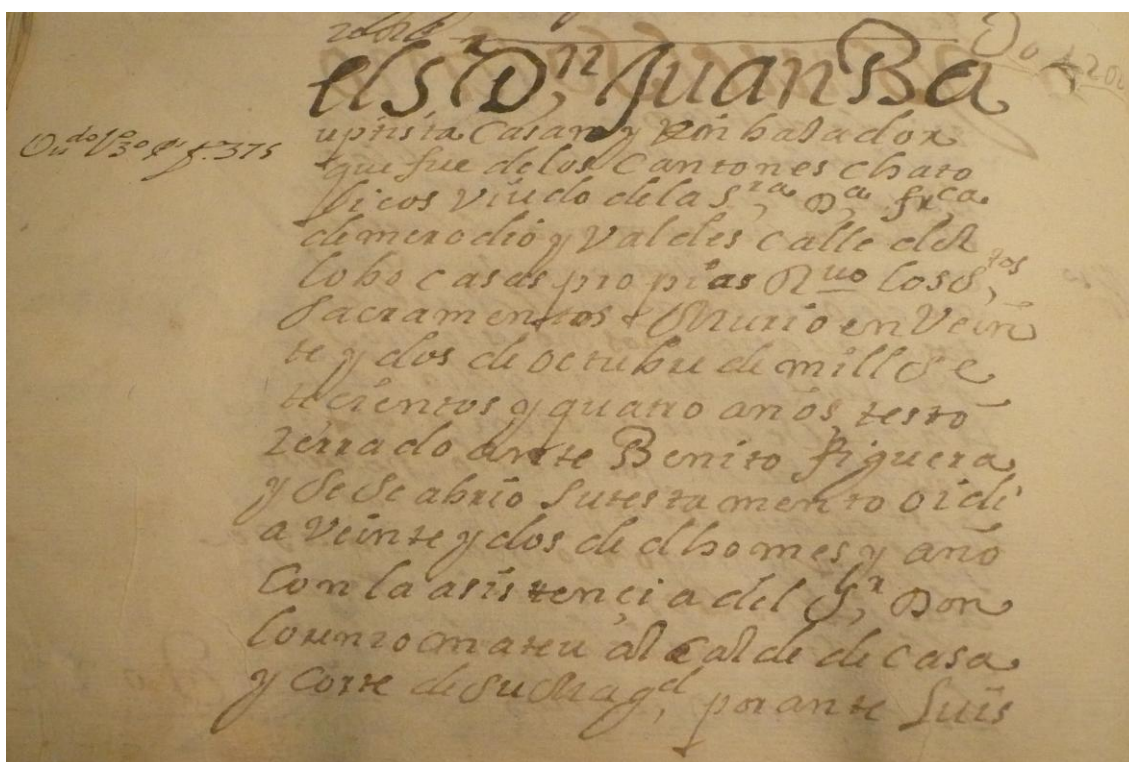 el S.r D.n Juan Ba
uptista Casani y Enbaxador
que fue de los Cantones Chato
licos Viudo de la S.ra D.a fr.ca
de merodio y Valdes calle del
lobo casas propias R.uo los S.tos
Sacramentos Murio en Vein
te y dos de octubre de mill Se
tecientos y quatro años, testo
zerrado ante Benito figuera
y Se Se abrio Su testamento oi di
a Veinte y dos de dho mes y año
Con la asistencia del S.r Don
lorenzo mateu alcalde de Casa
y Corte de Su Mag.d, por ante Luis